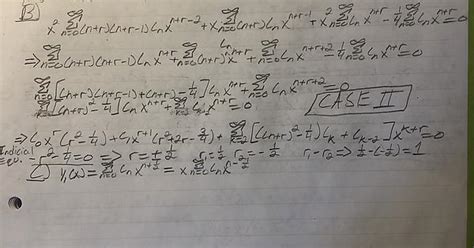 B)
x² ∑_{n=0}^∞ (n+r)(n+r-1)c_n x^{n+r-2} + x ∑_{n=0}^∞ (n+r)c_n x^{n+r-1} + x² ∑_{n=0}^∞ c_n x^{n+r} - 1/4 ∑_{n=0}^∞ c_n x^{n+r} = 0
⇒ ∑_{n=0}^∞ (n+r)(n+r-1)c_n x^{n+r} + ∑_{n=0}^∞ (n+r) c_n x^{n+r} + ∑_{n=0}^∞ c_n x^{n+r+2} - 1/4 ∑_{n=0}^∞ c_n x^{n+r} = 0
∑_{n=0}^∞ [(n+r)(n+r-1)+(n+r)-1/4] c_n x^{n+r} + ∑_{n=0}^∞ c_n x^{n+r+2} = 0
[(n+r)² - 1/4] c_n x^{n+r} + = 0 CASE II
⇒ c_0 x^r (r² - 1/4) + c_1 x^{r+1} (r² + 2r - 3/4) + ∑_{k=2}^∞ [((k+r)² - 1/4) c_k + c_{k-2}] x^{k+r} = 0
Indicial Equ. r² - 1/4 = 0 ⇒ r = ± 1/2 r_1 = 1/2 r_2 = -1/2 r_1 - r_2 ⇒ 1/2 - (-1/2) = 1
y_1(x) = ∑_{n=0}^∞ c_n x^{n+1/2} = x ∑_{n=0}^∞ c_n x^{n-1/2}